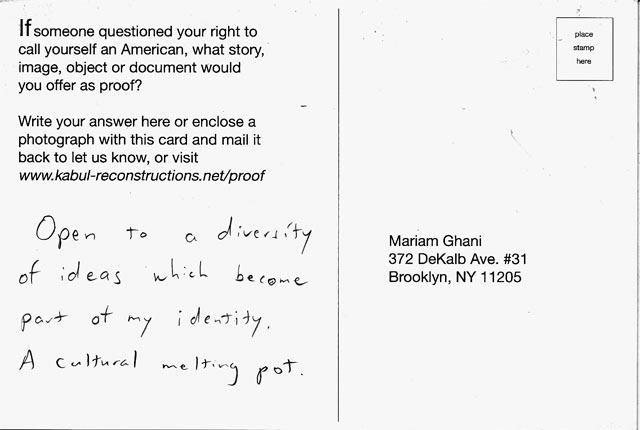 If someone questioned your right to
call yourself an American, what story,
image, object or document would
you offer as proof?
Write your answer here or enclose a
photograph with this card and mail it
back to let us know, or visit
www.kabul-reconstructions.net/proof
Open to a diversity
of ideas which become
part of my identity.
A cultural melting pot.
place
stamp
here
Mariam Ghani
372 DeKalb Ave. #31
Brooklyn, NY 11205